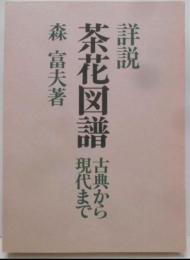 詳説
茶花図譜
古典から
現代まで
森富夫著